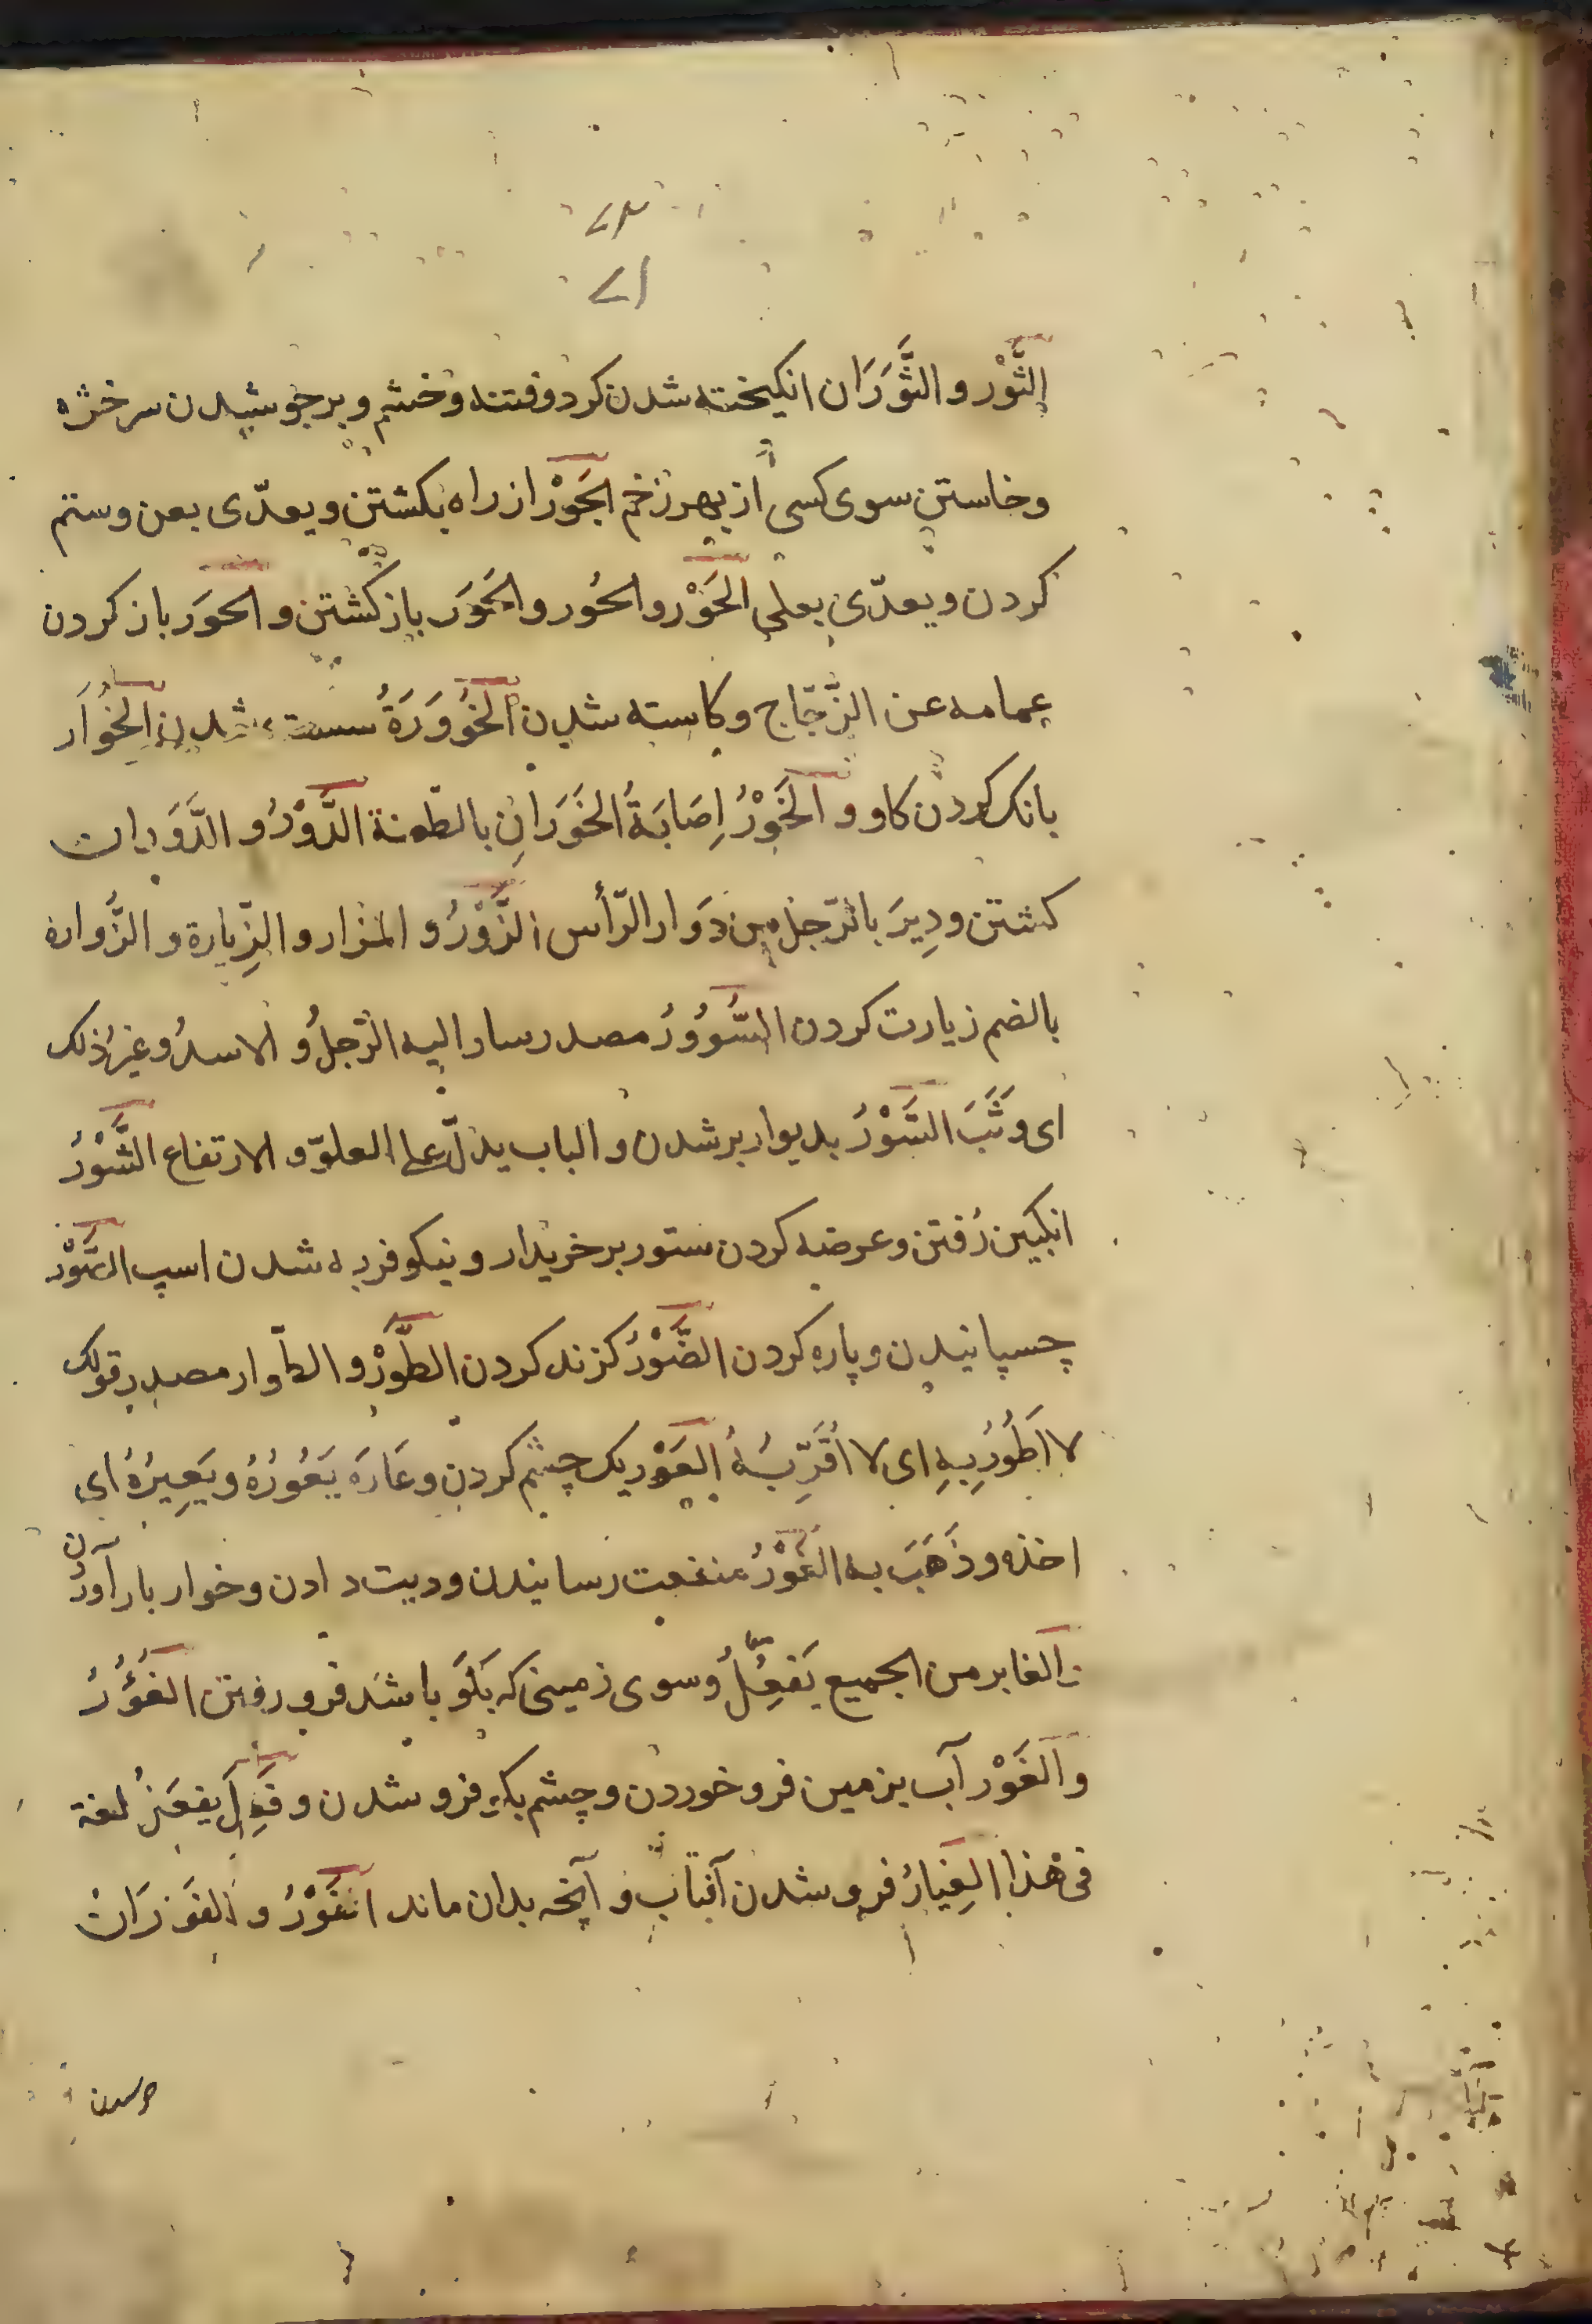 الثَّوْر و الثَّوَرَان انكيخته شدن كرد وفتنه وخشم و برجوشیدن سرخژه
وخاستن سوى كسى از بهر زخم الجَوْر از راه بكشتن و يعدّى بعن وستم
كردن و يعدّى بعلى الحَوْر و الحُور و الحَوَر باز كشتن و الحَوَر باز كردن
عمامه عن الزَّجّاج و كاسته شدن الخُؤُورَةُ سست شدن الخُوَار
بانك كردن كاو و الخَوْرُ اِصَابَةُ الخَوَرَانِ بالطعنة الدَّوْرُ و الدَّوَران
كشتن و دِيرَ بالرّجل من دَوَار الرّأس الزَّوْرُ و المزار و الزِّيارة و الزُّوارة
بالضم زيارت كردن السُّوُورُ مصدر سار اليه الرّجلُ و الاسدُ و غيرُ ذلك
اى وَثَبَ السَّوْرُ بديوار بر شدن و الباب يدلّ على العلوّ و الارتفاع الشَّوْرُ
انكبين رُفتن و عرضه كردن ستور بر خريدار و نيكو فربه شدن اسپ الصَّوْر
چسپانيدن و پاره كردن الضَّوْرُ كزند كردن الطَّوْرُ و الطّوار مصدر قولك
لا اَطُورُ بِهِ اى لا اُقَرِّبُهُ العَوْر يك چشم كردن و عَارَه يَعُورُهُ و يَعِيرُهُ اى
اخذه و ذَهَبَ به الغَوْرُ منفعت رسانيدن و ديت دادن و خوار بار آوردن
الغابر من الجميع يَفعِلُ و سوى زمينى كه بكَو باشد فرو رفتن الغُؤُرُ
و الغَوْر آب بزمين فرو خوردن و چشم بكو فرو شدن و فَعِلَ يفعَلُ لغة
فى هذا الغِيارُ فرو شدن آفتاب و آنچه بدان ماند الفَوْرُ و الفَوَرَان